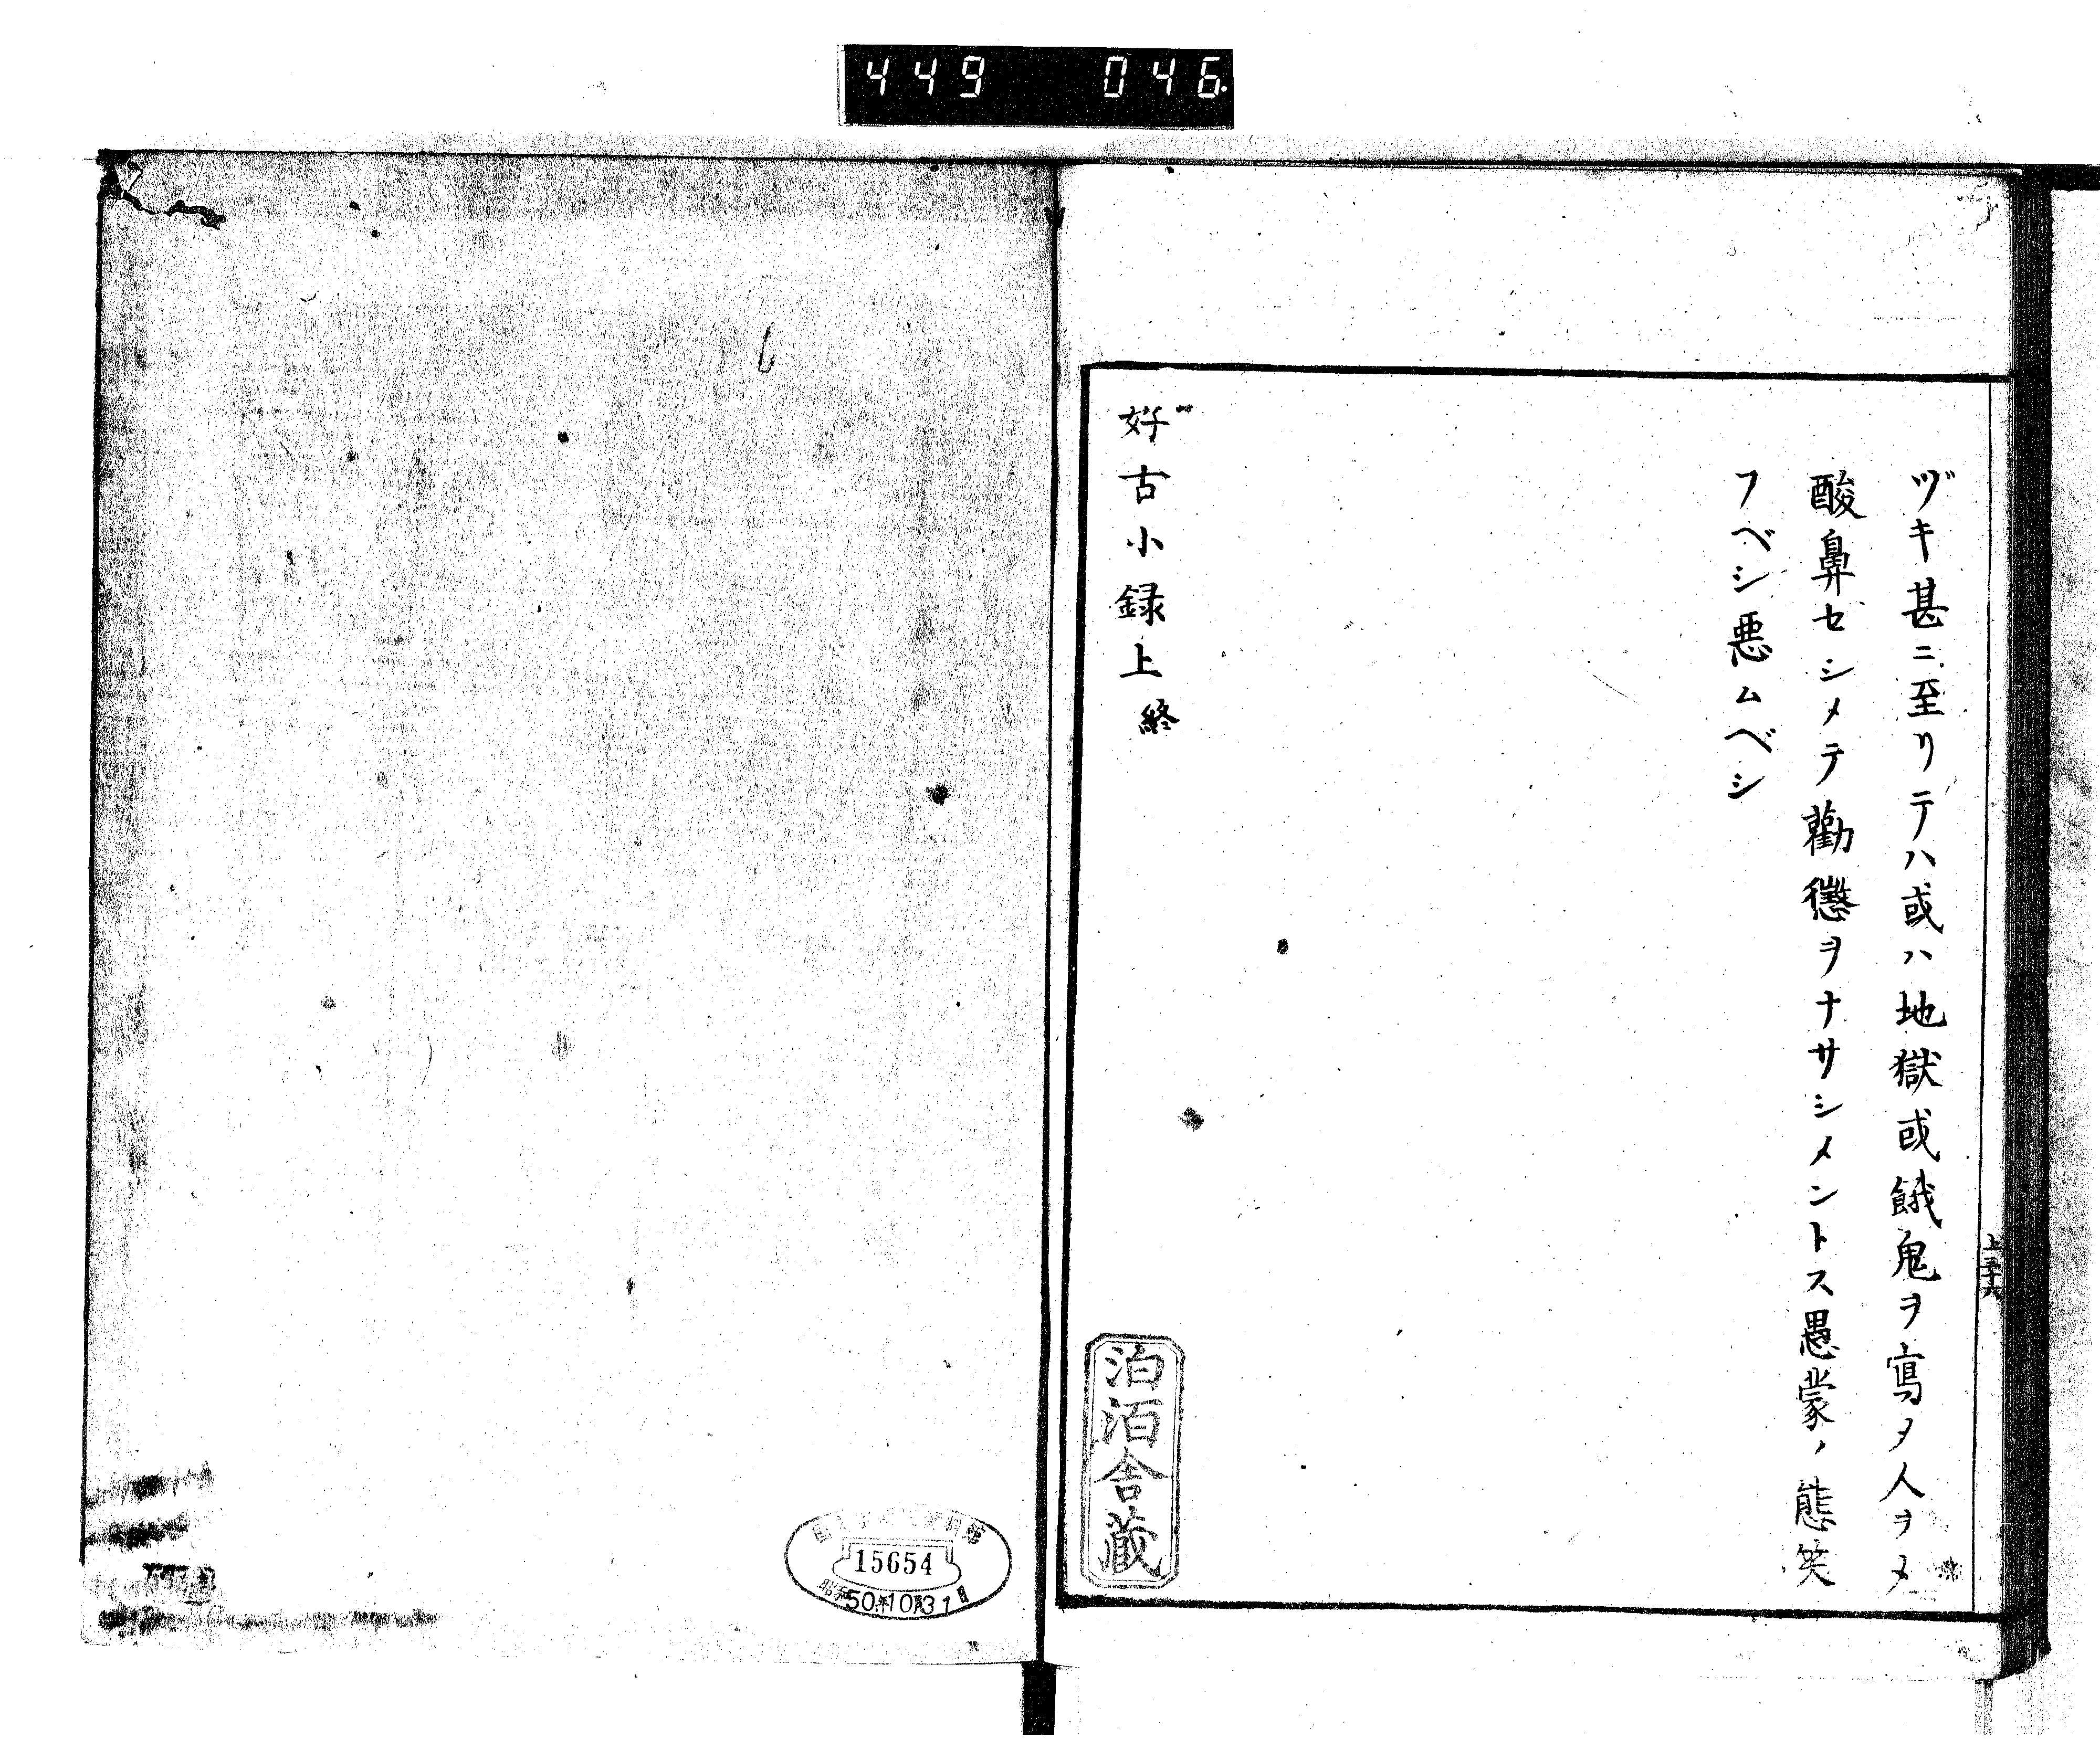 449 046.
ヅキ甚ニ至リテハ或ハ地獄或餓鬼ヲ寫タ人ヲメ
酸鼻セシメテ勸懲ヲナサシメントス愚蒙ノ態笑
フベシ悪ムベシ
好古小録上終
上三十六
泊洦舎蔵
15654
昭和50年10月31日